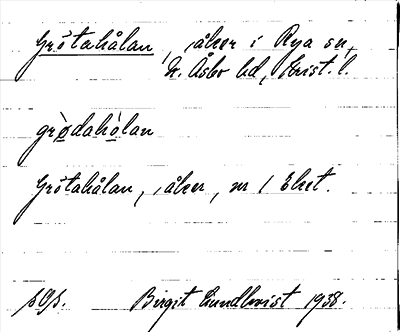 Grötahålan, åker i Rya sn,
N. Åsbo hd, Krist. l.
grò̤dahò̤lan
Grötahålan, åker, nr 1 Eket.
Birgit Lundkvist 1938.